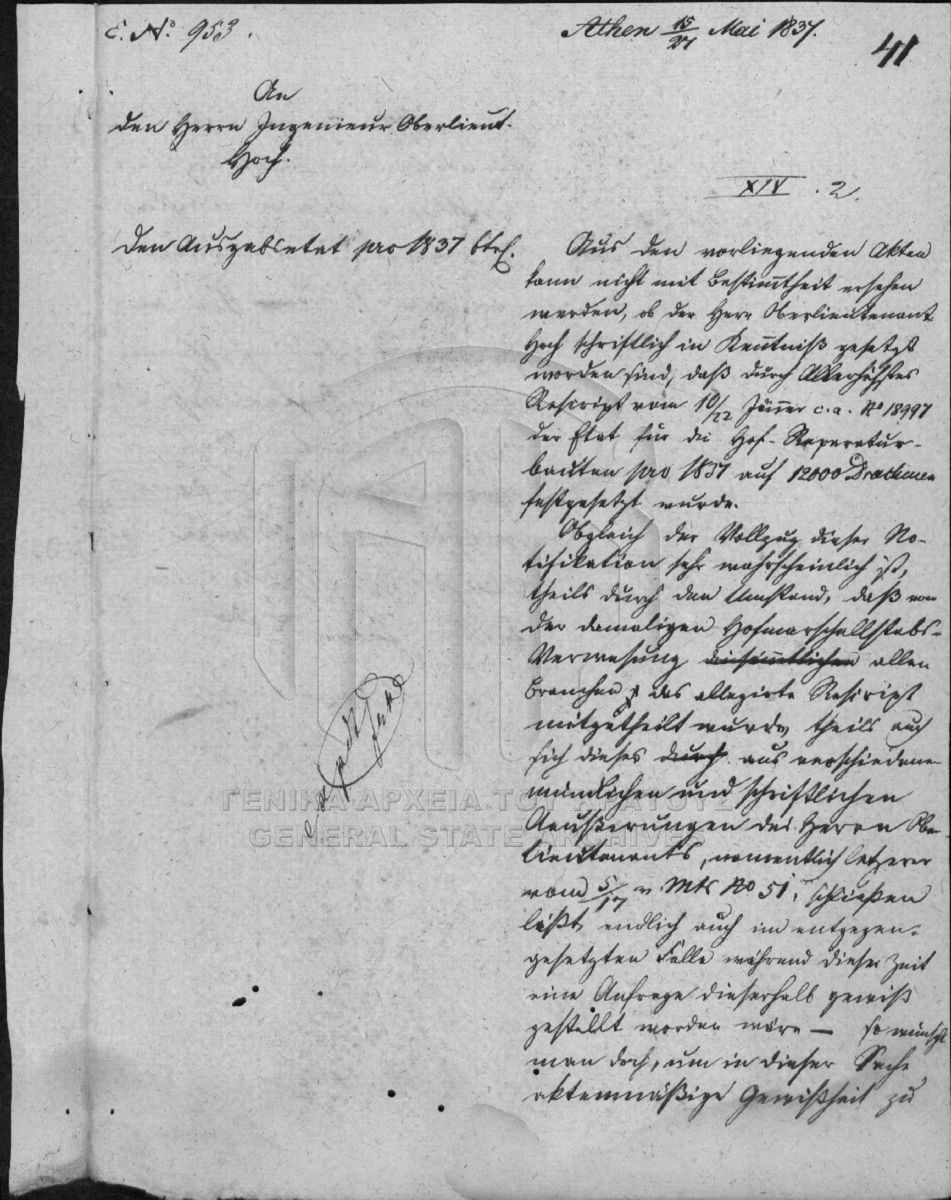 E. No. 953.
Athen 15/27 Mai 1837.
41
An
den Herrn Ingenieur Oberlieut.
Hoch.
XIV. 2.
Den Ausgabsetat pro 1837 betf.
Aus den vorliegenden Akten
kann nicht mit Bestimtheit ersehen
werden, ob der Herr Oberlieutenant
Hoch schriftlich in Kentniß gesetzt
worden sind, daß durch Allerhöchstes
Rescript vom 10/22 Jäner c. a. No 18997
der Etat für die Hof-Reparatur-
bauten pro 1837 auf 12000 Drachmen
festgesetzt wurde.
Obgleich der Vollzug dieser No-
tifikation sehr wahrscheinlich ist,
theils durch den Umstand, daß von
der damaligen Hofmarschallstabs-
Verwesung allen
Branchen das allegirte Rescript
mitgetheilt wurde, theils auch
sich dieses durch aus verschiedenen
mündlichen und schriftlichen
Aeußerungen des Herrn Obe
lieutenants, namentlich letzerer
vom 5/17 v. Mts No 51, schließen
läßt, endlich auch im entgegen-
gesetzten Falle während dieser Zeit
eine Anfrage dieserhalb gewiß
gestellt worden wäre — so wünscht
man doch, um in dieser Sache
aktenmäßige Gewißheit zu
ΓΕΝΙΚΑ ΑΡΧΕΙΑ ΤΟΥ ΚΡΑΤΟΥΣ
GENERAL STATE ARCHIVES